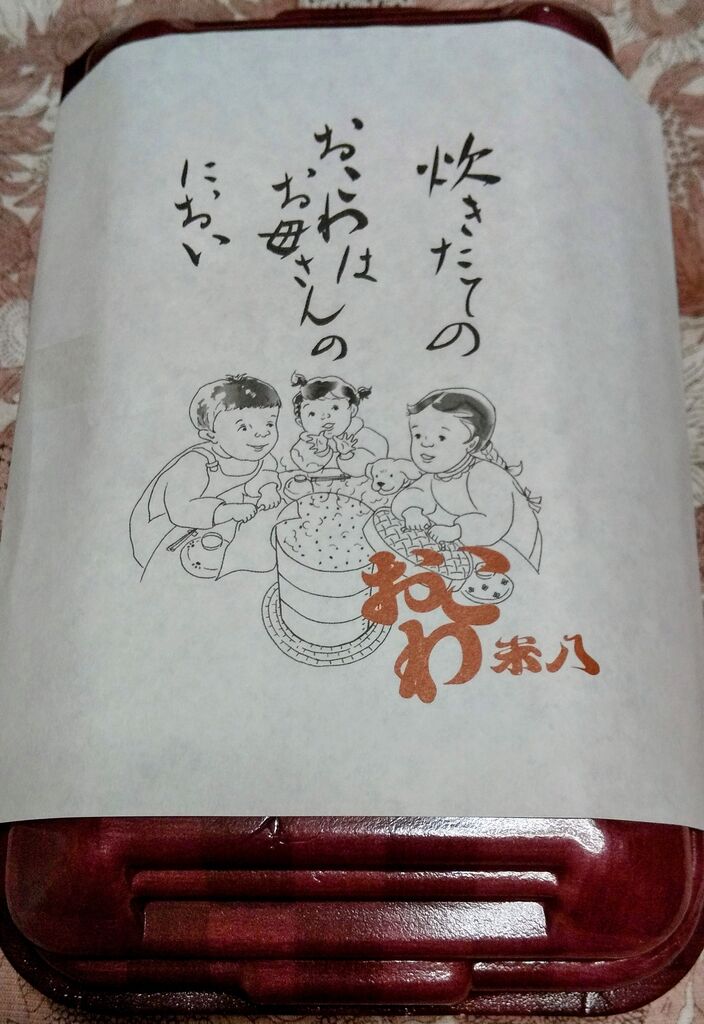 炊きたての
おこわは
お母さんの
におい
おこわ
米八